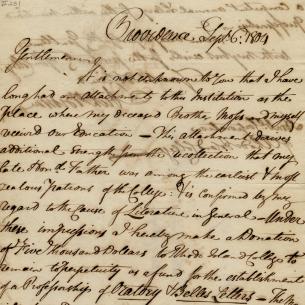 Providence, Sept. 6. 1804
Gentlemen,
It is not unknown to You that I have
long had an Attachment to this Institution as the
place where my deceased Brother Moses and myself
received our Education — This Attachment derives
additional Strength from the recollection that my
late Hond. Father was among the earliest & most
zealous Patrons of the College; & is confirmed by my
regard to the Cause of Literature in General — Under
these impressions I hereby make a Donation
of Five Thousand Dollars to Rhode Island College to
remain to perpetuity as a fund for the establishment
of a Professorship of Oratory & Belles Letters — The